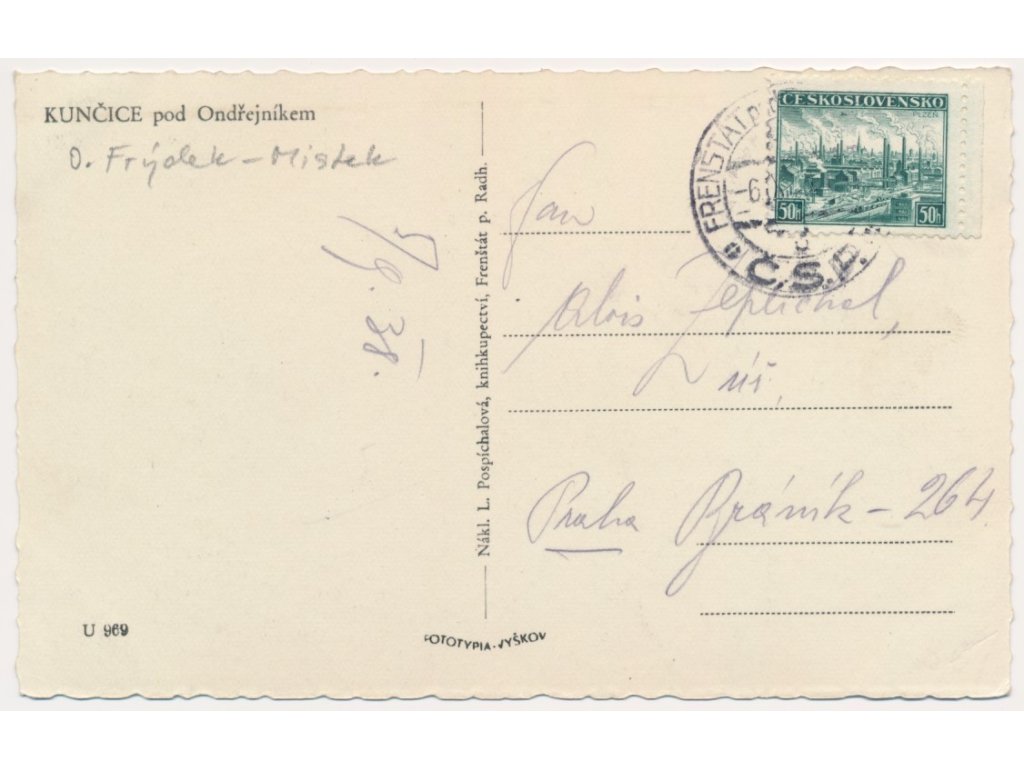 KUNČICE pod Ondřejníkem
O. Frýdek-Místek
5/9. 38.
Nákl. L. Pospíchalová, knihkupectví, Frenštát p. Radh.
U 969
FOTOTYPIA-VYŠKOV
ČESKOSLOVENSKO
PLZEŇ
50h 50h
FRENŠTÁT
6
Č.S.P.
Pan
Alois
úř.
Praha Bráník-264